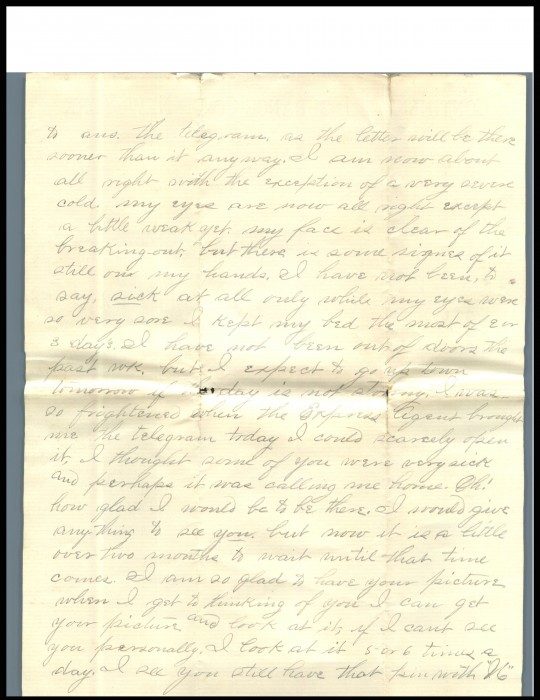 to ans. the telegram, as the letter will be there
sooner than it anyway. I am now about
all right with the exception of a very severe
cold. my eyes are now all right except
a little weak yet. my face is clear of the
breaking out, but there is some signes of it
still on my hands. I have not been, to
say, sick at all only while my eyes were
so very sore I kept my bed the most of 2 or
3 days. I have not been out of doors the
past wk. but I expect to go up town
tomorrow if the day is not stormy. I was
so frightened when the Express Agent brought
me the telegram today I could scarcely open
it, I thought some of you were very sick
and perhaps it was calling me home. Oh!
how glad I would be to be there. I would give
anything to see you. but now it is a little
over two months to wait until that time
comes. I am so glad to have your picture
when I get to thinking of you I can get
your picture and look at it, if I cant see
you personally. I look at it 5 or 6 times a
day. I see you still have that pin with